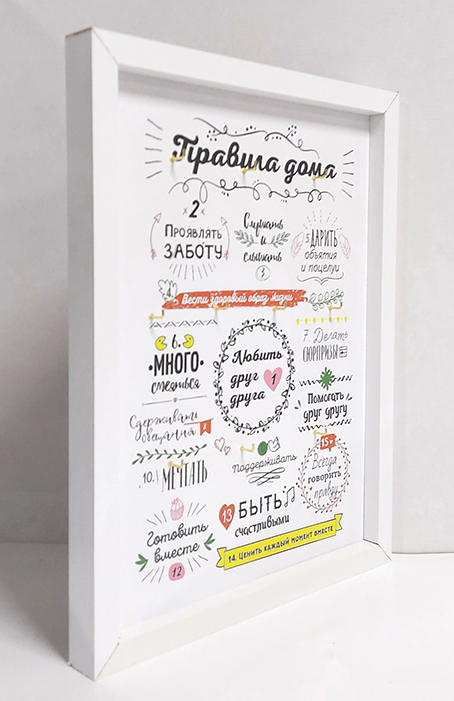 Правила дома
2
Проявлять
ЗАБОТУ
Слушать
и
слышать
3
5 ДАРИТЬ
объятия
и поцелуи
4
Вести здоровый образ жизни
6.
МНОГО
смеяться
Любить
друг
друга 1
7. Делать
СЮРПРИЗЫ
Помогать
друг другу
Сдерживать
обещания
10. МЕЧТАТЬ
поддерживать
15
Всегда
говорить
правду
Готовить
вместе
12
13 БЫТЬ
счастливыми
14. ЦЕНИТЬ КАЖДЫЙ МОМЕНТ ВМЕСТЕ